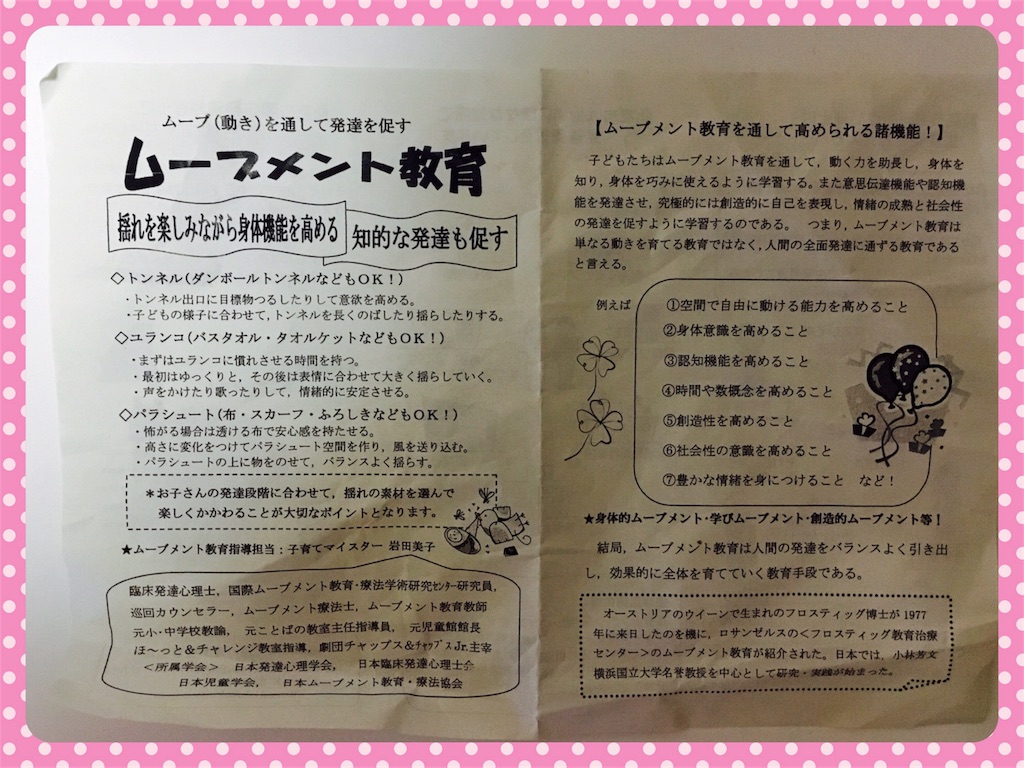 ムーブ(動き)を通して発達を促す
ムーブメント教育
揺れを楽しみながら身体機能を高める
知的な発達も促す
◇トンネル(ダンボールトンネルなどもOK!)
・トンネル出口に目標物つるしたりして意欲を高める。
・子どもの様子に合わせて,トンネルを長くのばしたり揺らしたりする。
◇ユランコ(バスタオル・タオルケットなどもOK!)
・まずはユランコに慣れさせる時間を持つ。
・最初はゆっくりと,その後は表情に合わせて大きく揺らしていく。
・声をかけたり歌ったりして,情緒的に安定させる。
◇パラシュート(布・スカーフ・ふろしきなどもOK!)
・怖がる場合は透ける布で安心感を持たせる。
・高さに変化をつけてパラシュート空間を作り,風を送り込む。
・パラシュートの上に物をのせて,バランスよく揺らす。
＊お子さんの発達段階に合わせて,揺れの素材を選んで
楽しくかかわることが大切なポイントとなります。
★ムーブメント教育指導担当:子育てマイスター 岩田美子
臨床発達心理士,国際ムーブメント教育・療法学術研究センター研究員,
巡回カウンセラー,ムーブメント療法士,ムーブメント教育教師
元小・中学校教諭, 元ことばの教室主任指導員, 元児童館館長
ほ〜っと&チャレンジ教室指導,劇団チャップス&チャップスJr.主宰
<所属学会> 日本発達心理学会, 日本臨床発達心理士会
日本児童学会, 日本ムーブメント教育・療法協会
【ムーブメント教育を通して高められる諸機能!】
子どもたちはムーブメント教育を通して,動く力を助長し,身体を
知り,身体を巧みに使えるように学習する。また意思伝達機能や認知機
能を発達させ,究極的には創造的に自己を表現し,情緒の成熟と社会性
の発達を促すように学習するのである。 つまり,ムーブメント教育は
単なる動きを育てる教育ではなく,人間の全面発達に通ずる教育である
と言える。
例えば
①空間で自由に動ける能力を高めること
②身体意識を高めること
③認知機能を高めること
④時間や数概念を高めること
⑤創造性を高めること
⑥社会性の意識を高めること
⑦豊かな情緒を身につけること など!
★身体的ムーブメント・学びムーブメント・創造的ムーブメント等!
結局,ムーブメント教育は人間の発達をバランスよく引き出
し,効果的に全体を育てていく教育手段である。
オーストリアのウイーンで生まれのフロスティッグ博士が1977
年に来日したのを機に,ロサンゼルスの<フロスティッグ教育治療
センター>のムーブメント教育が紹介された。日本では,小林芳文
横浜国立大学名誉教授を中心として研究・実践が始まった。